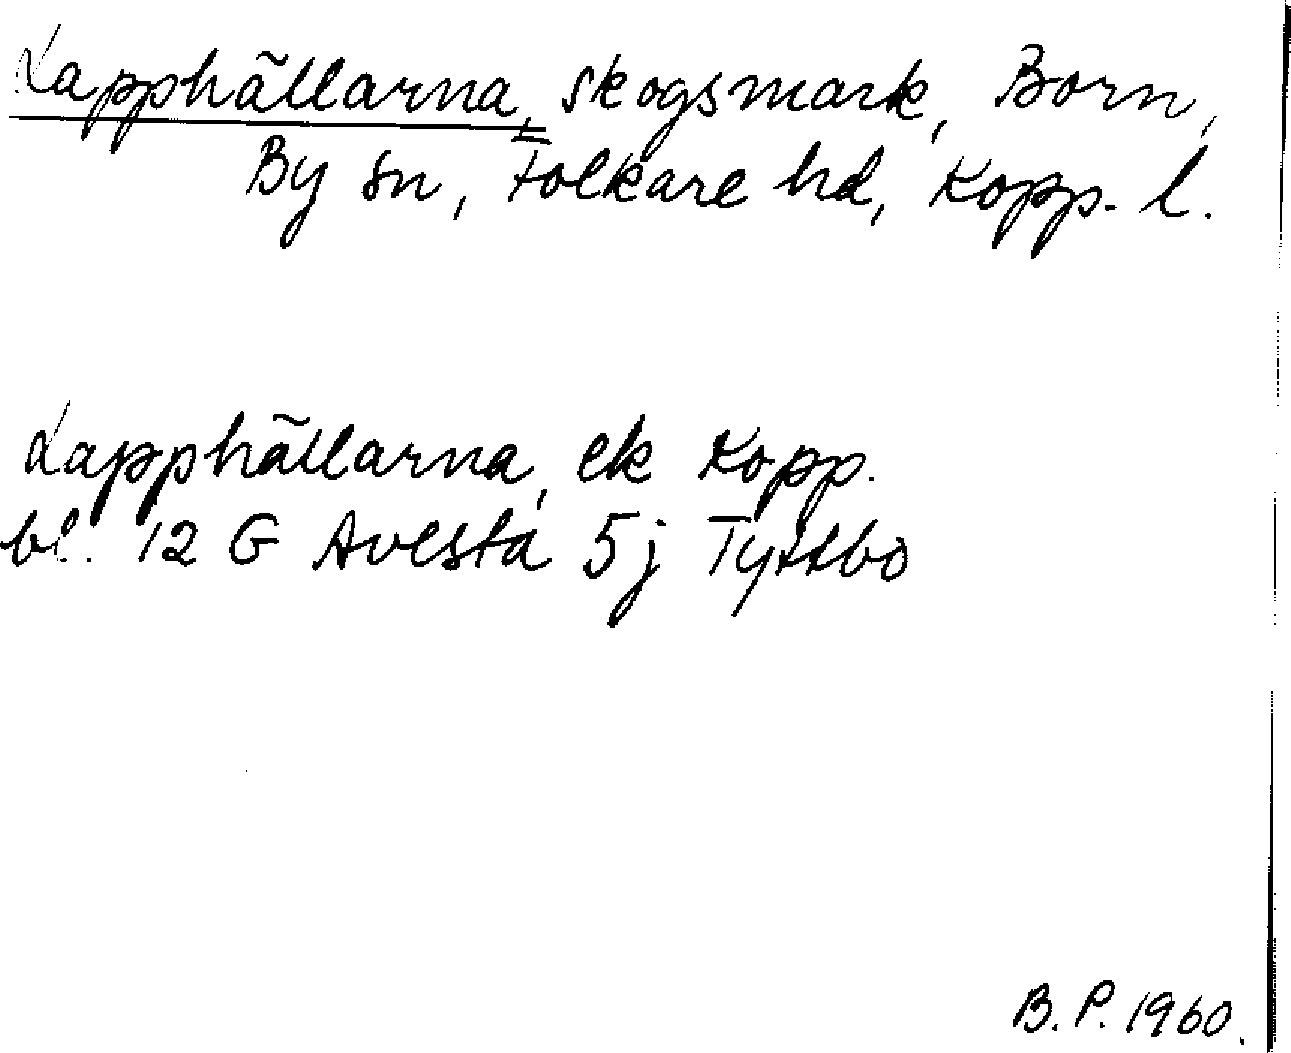 Lapphällarna, skogsmark, Born,
By sn, Folkare hd, Kopp. l.
Lapphällarna, ek Kopp.
bl. 12 G Avesta 5j Tyttbo
B. P. 1960.